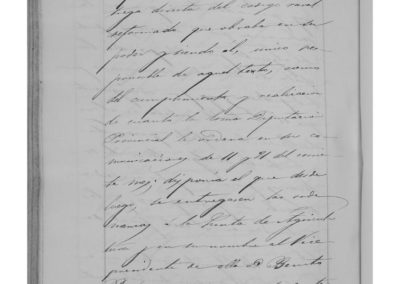 directa del codigo rural
reformado que obraba en su
poder y siendo el, unico res-
ponsable de aquel texto, como
del cumplimento y realizacion
de cuanto la Exma Diputacion
Provincial le ordena en sus co-
municaciones de 11 y 21 del corrien-
te mes, disponia el que desde
luego, se entregasen las orde-
nanzas á la Junta de Agricul-
tura y en su nombre al Vice
presidente de ella D. Benito